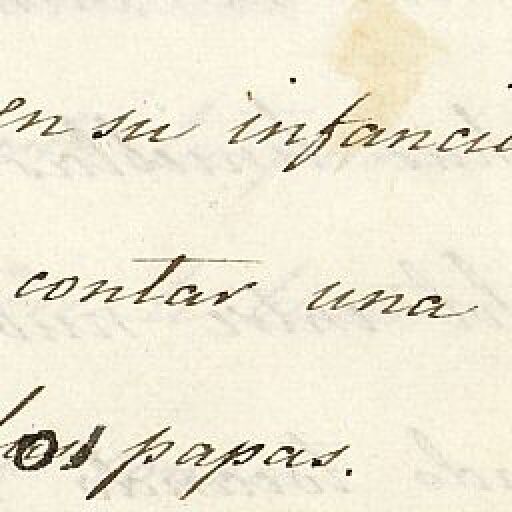 en su infanci
contar una
papas.